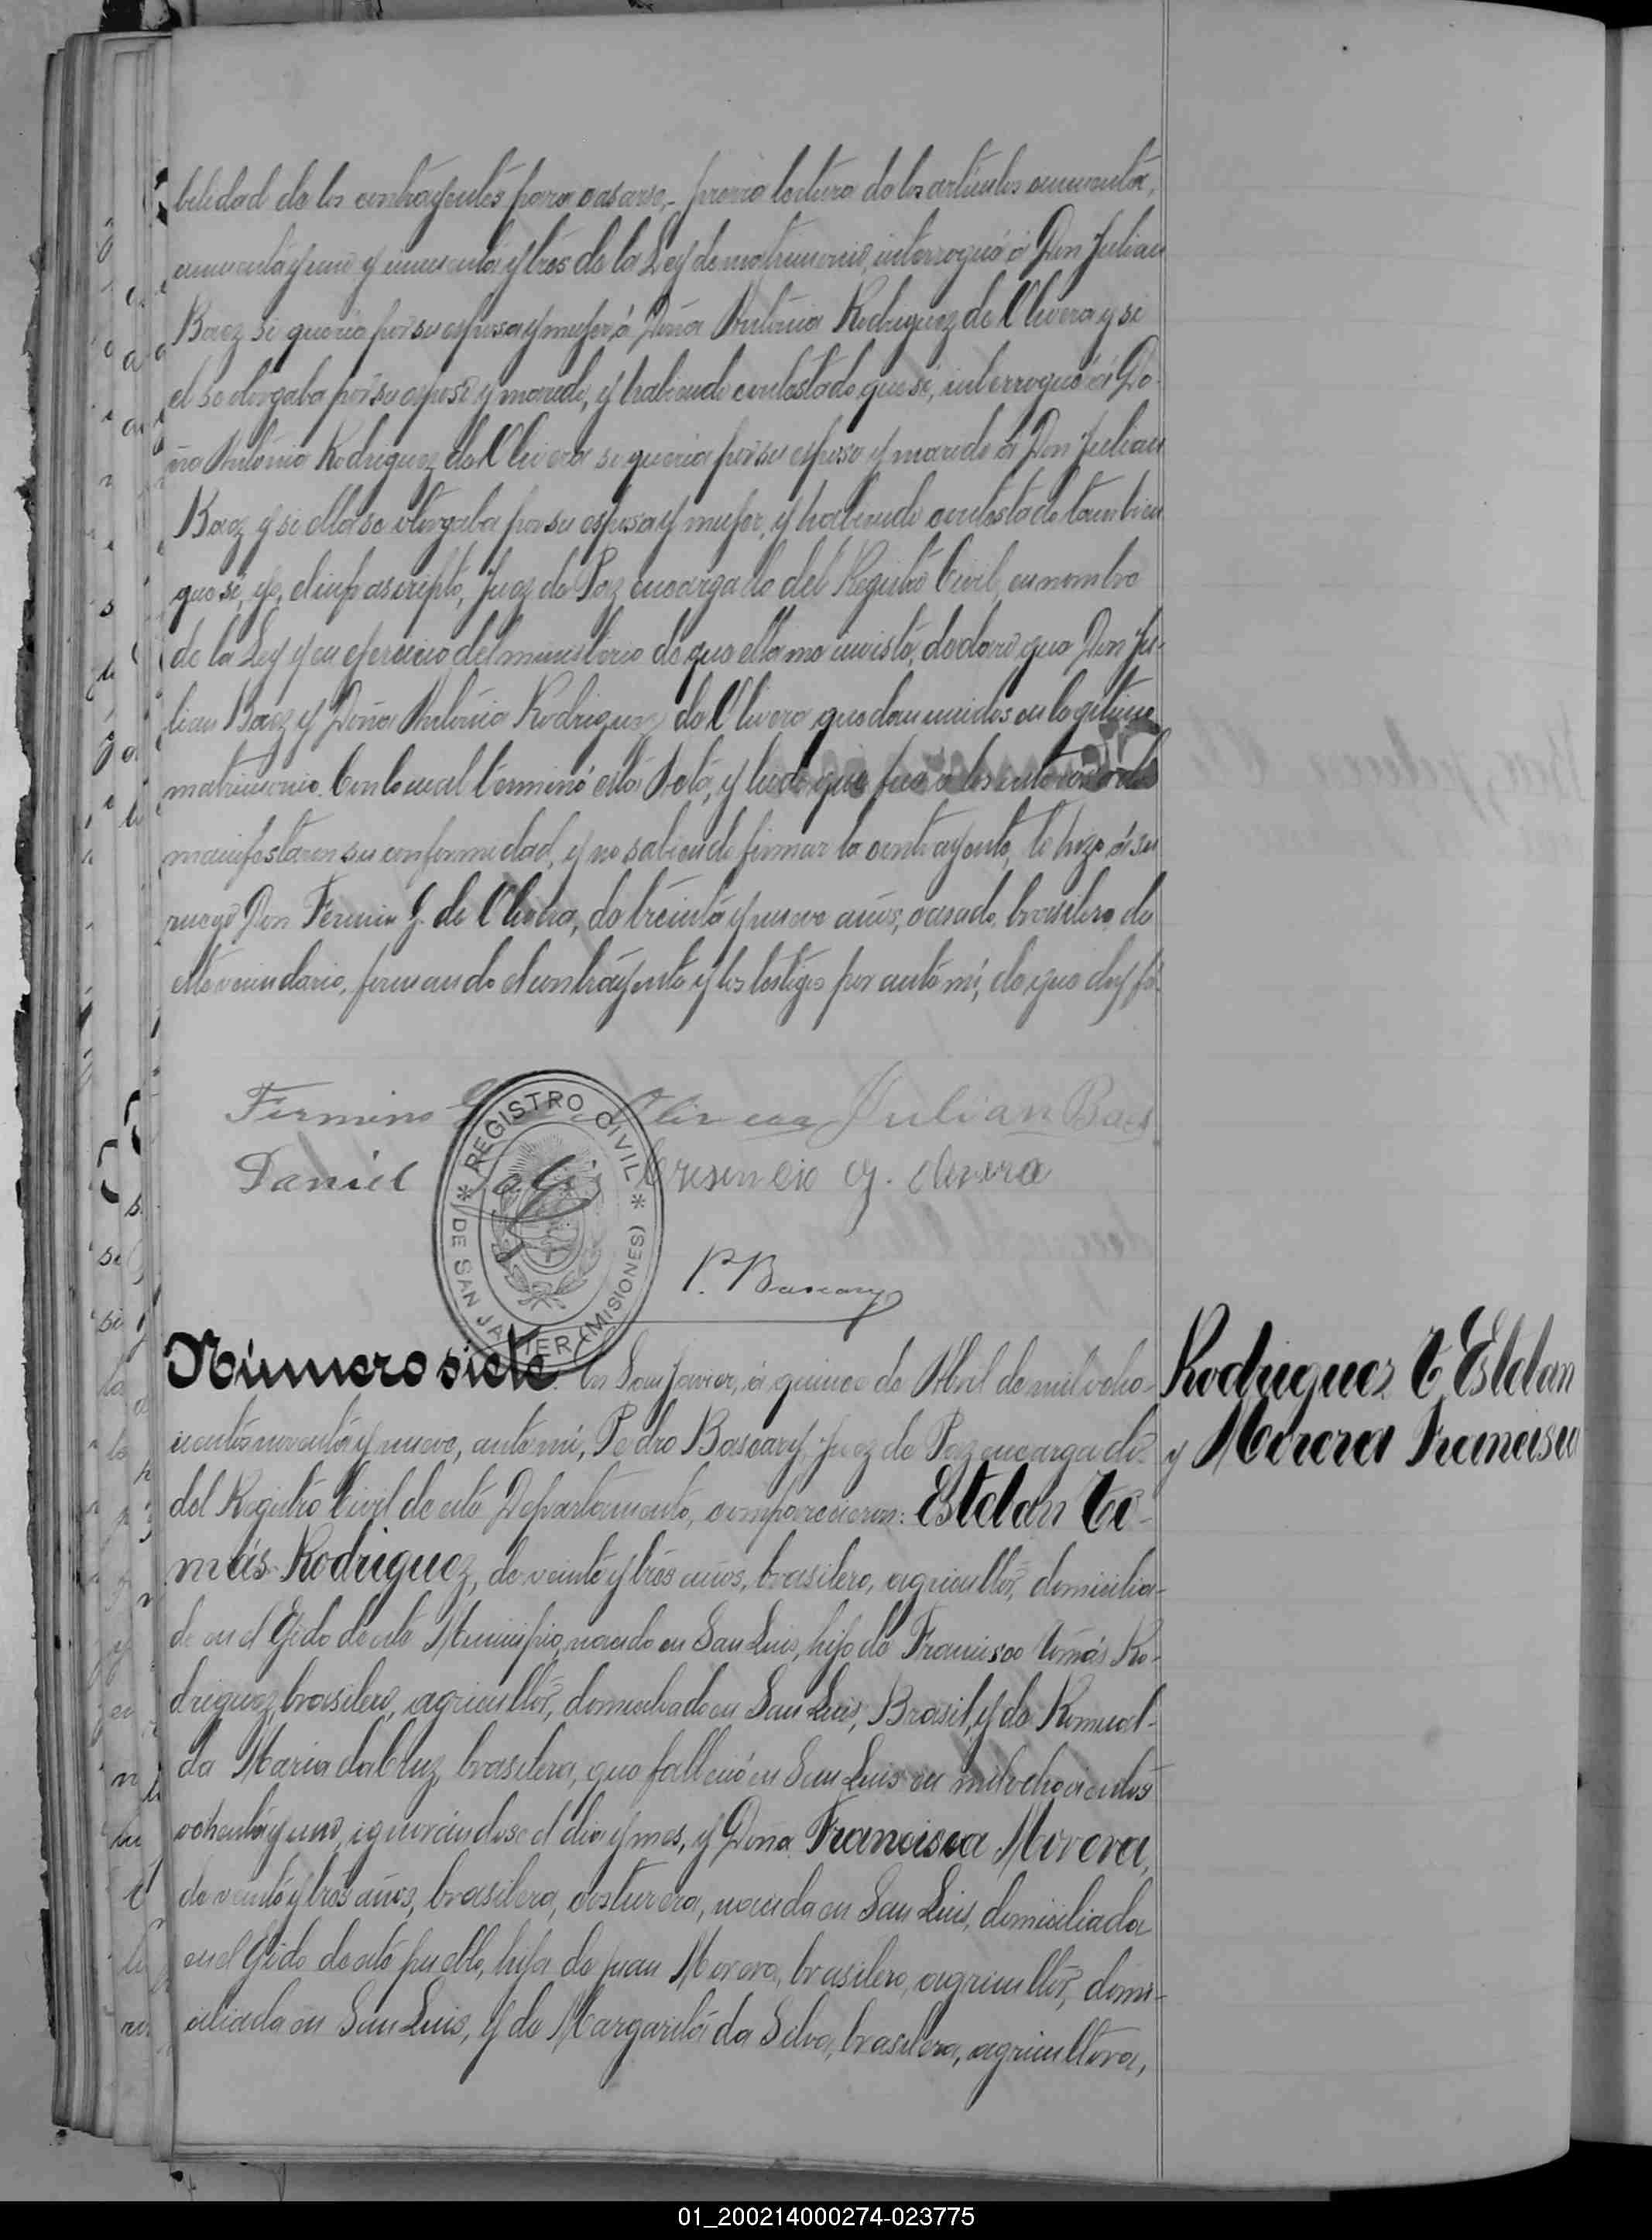 bilidad de los contrayentes para casarse, previa lectura de los artículos cincuenta,
cincuenta y uno y cincuenta y tres de la Ley de matrimonio, interrogué á Don Julian
Baez si queria por su esposa y mujer á Doña Antonia Rodriguez de Olivera y si
el se otorgaba por su esposo y marido, y habiendo contestado que si, interrogué á Do-
ña Antonia Rodriguez de Olivera si queria por su esposo y marido á Don Julian
Baez y si ella se otorgaba por su esposa y mujer, y habiendo contestado tambien
que si, yo, el infrascripto, Juez de Paz encargado del Registro Civil, en nombre
de la Ley y en ejercicio del ministerio de que ella me inviste, declaro que Don Ju-
lian Baez y Doña Antonia Rodriguez de Olivera quedan unidos en legitimo
matrimonio. Con lo cual terminó esta Acta, y leida que fue á los interesados
manifestaron su conformidad, y no sabiendo firmar la contrayente, lo hizo á su
ruego Don Fermin G. de Olivera, de treinta y nueve años, casado, brasilero, de
este vecindario, firmando el contrayente y los testigos por ante mi, de que doy fé.
Fermino G. de Olivera Julian Baes
Daniel Cresencio G. Olivera
REGISTRO CIVIL
DE SAN JAVIER (MISIONES)
P. Bascary
Número siete. En San Javier, á quince de Abril de mil ocho-
cientos noventa y nueve, ante mi, Pedro Bascary, Juez de Paz encargado
del Registro Civil de este Departamento, comparecieron: Esteban To-
más Rodriguez, de veinte y tres años, brasilero, agricultor, domicilia-
do en el Egido de este Municipio, nacido en San Luis, hijo de Francisco Tomás Ro-
driguez, brasilero, agricultor, domiciliado en San Luis, Brasil, y de Romual-
da Maria da Cruz, brasilera, que falleció en San Luis en mil ochocientos
ochenta y uno, ignorándose el dia y mes, y Doña Francisca Morera,
de veinte y tres años, brasilera, costurera, nacida en San Luis, domiciliada
en el Egido de este pueblo, hija de Juan Morera, brasilero, agricultor, domi-
ciliado en San Luis, y de Margarita da Silva, brasilera, agricultora,
Rodriguez T. Esteban
y Morera Francisca
01_200214000274-023775